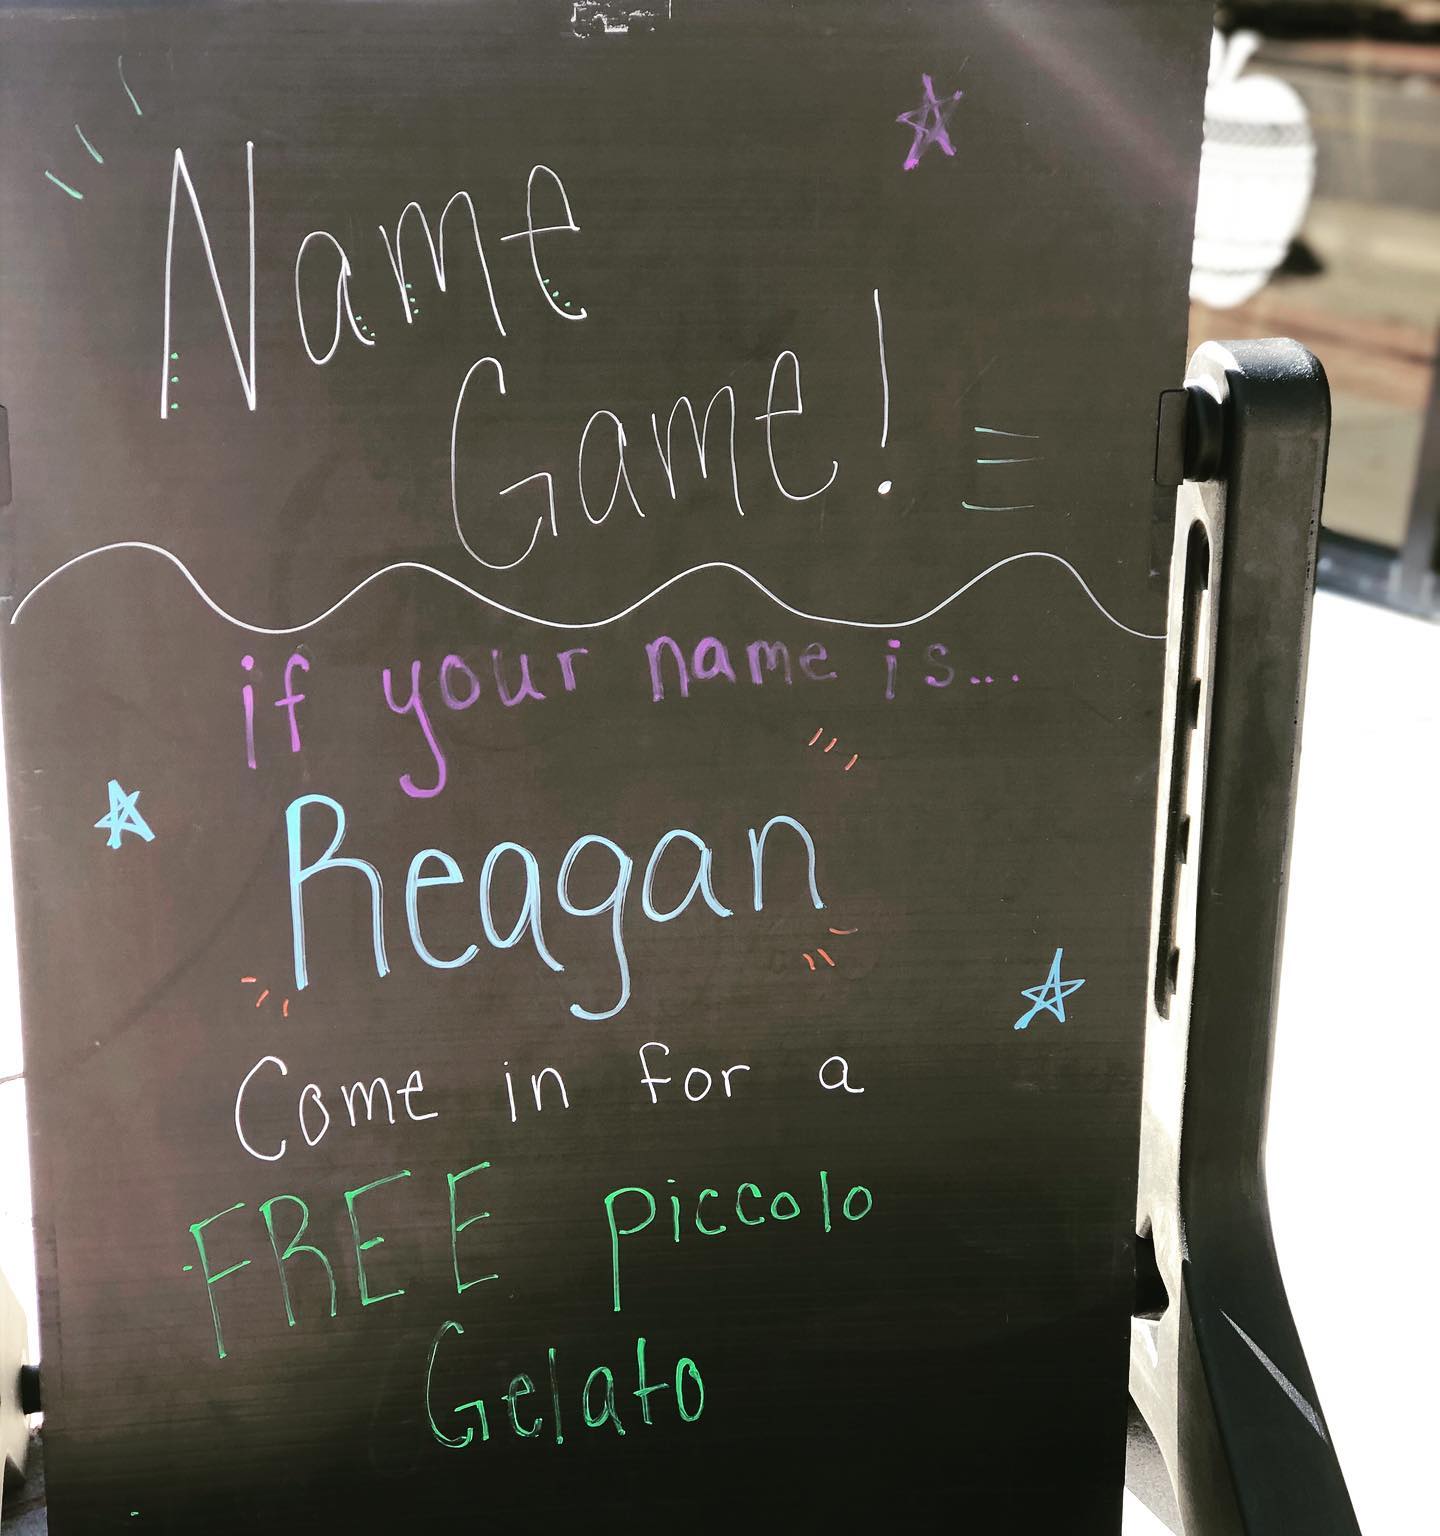 Name
Game!
if your name is...
Reagan
Come in for a
FREE piccolo
Gelato